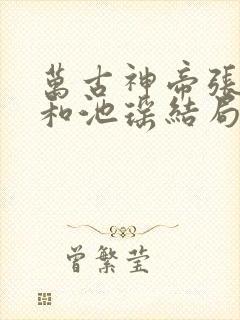 萬古神帝張
和池瑤結局
曾繁莹